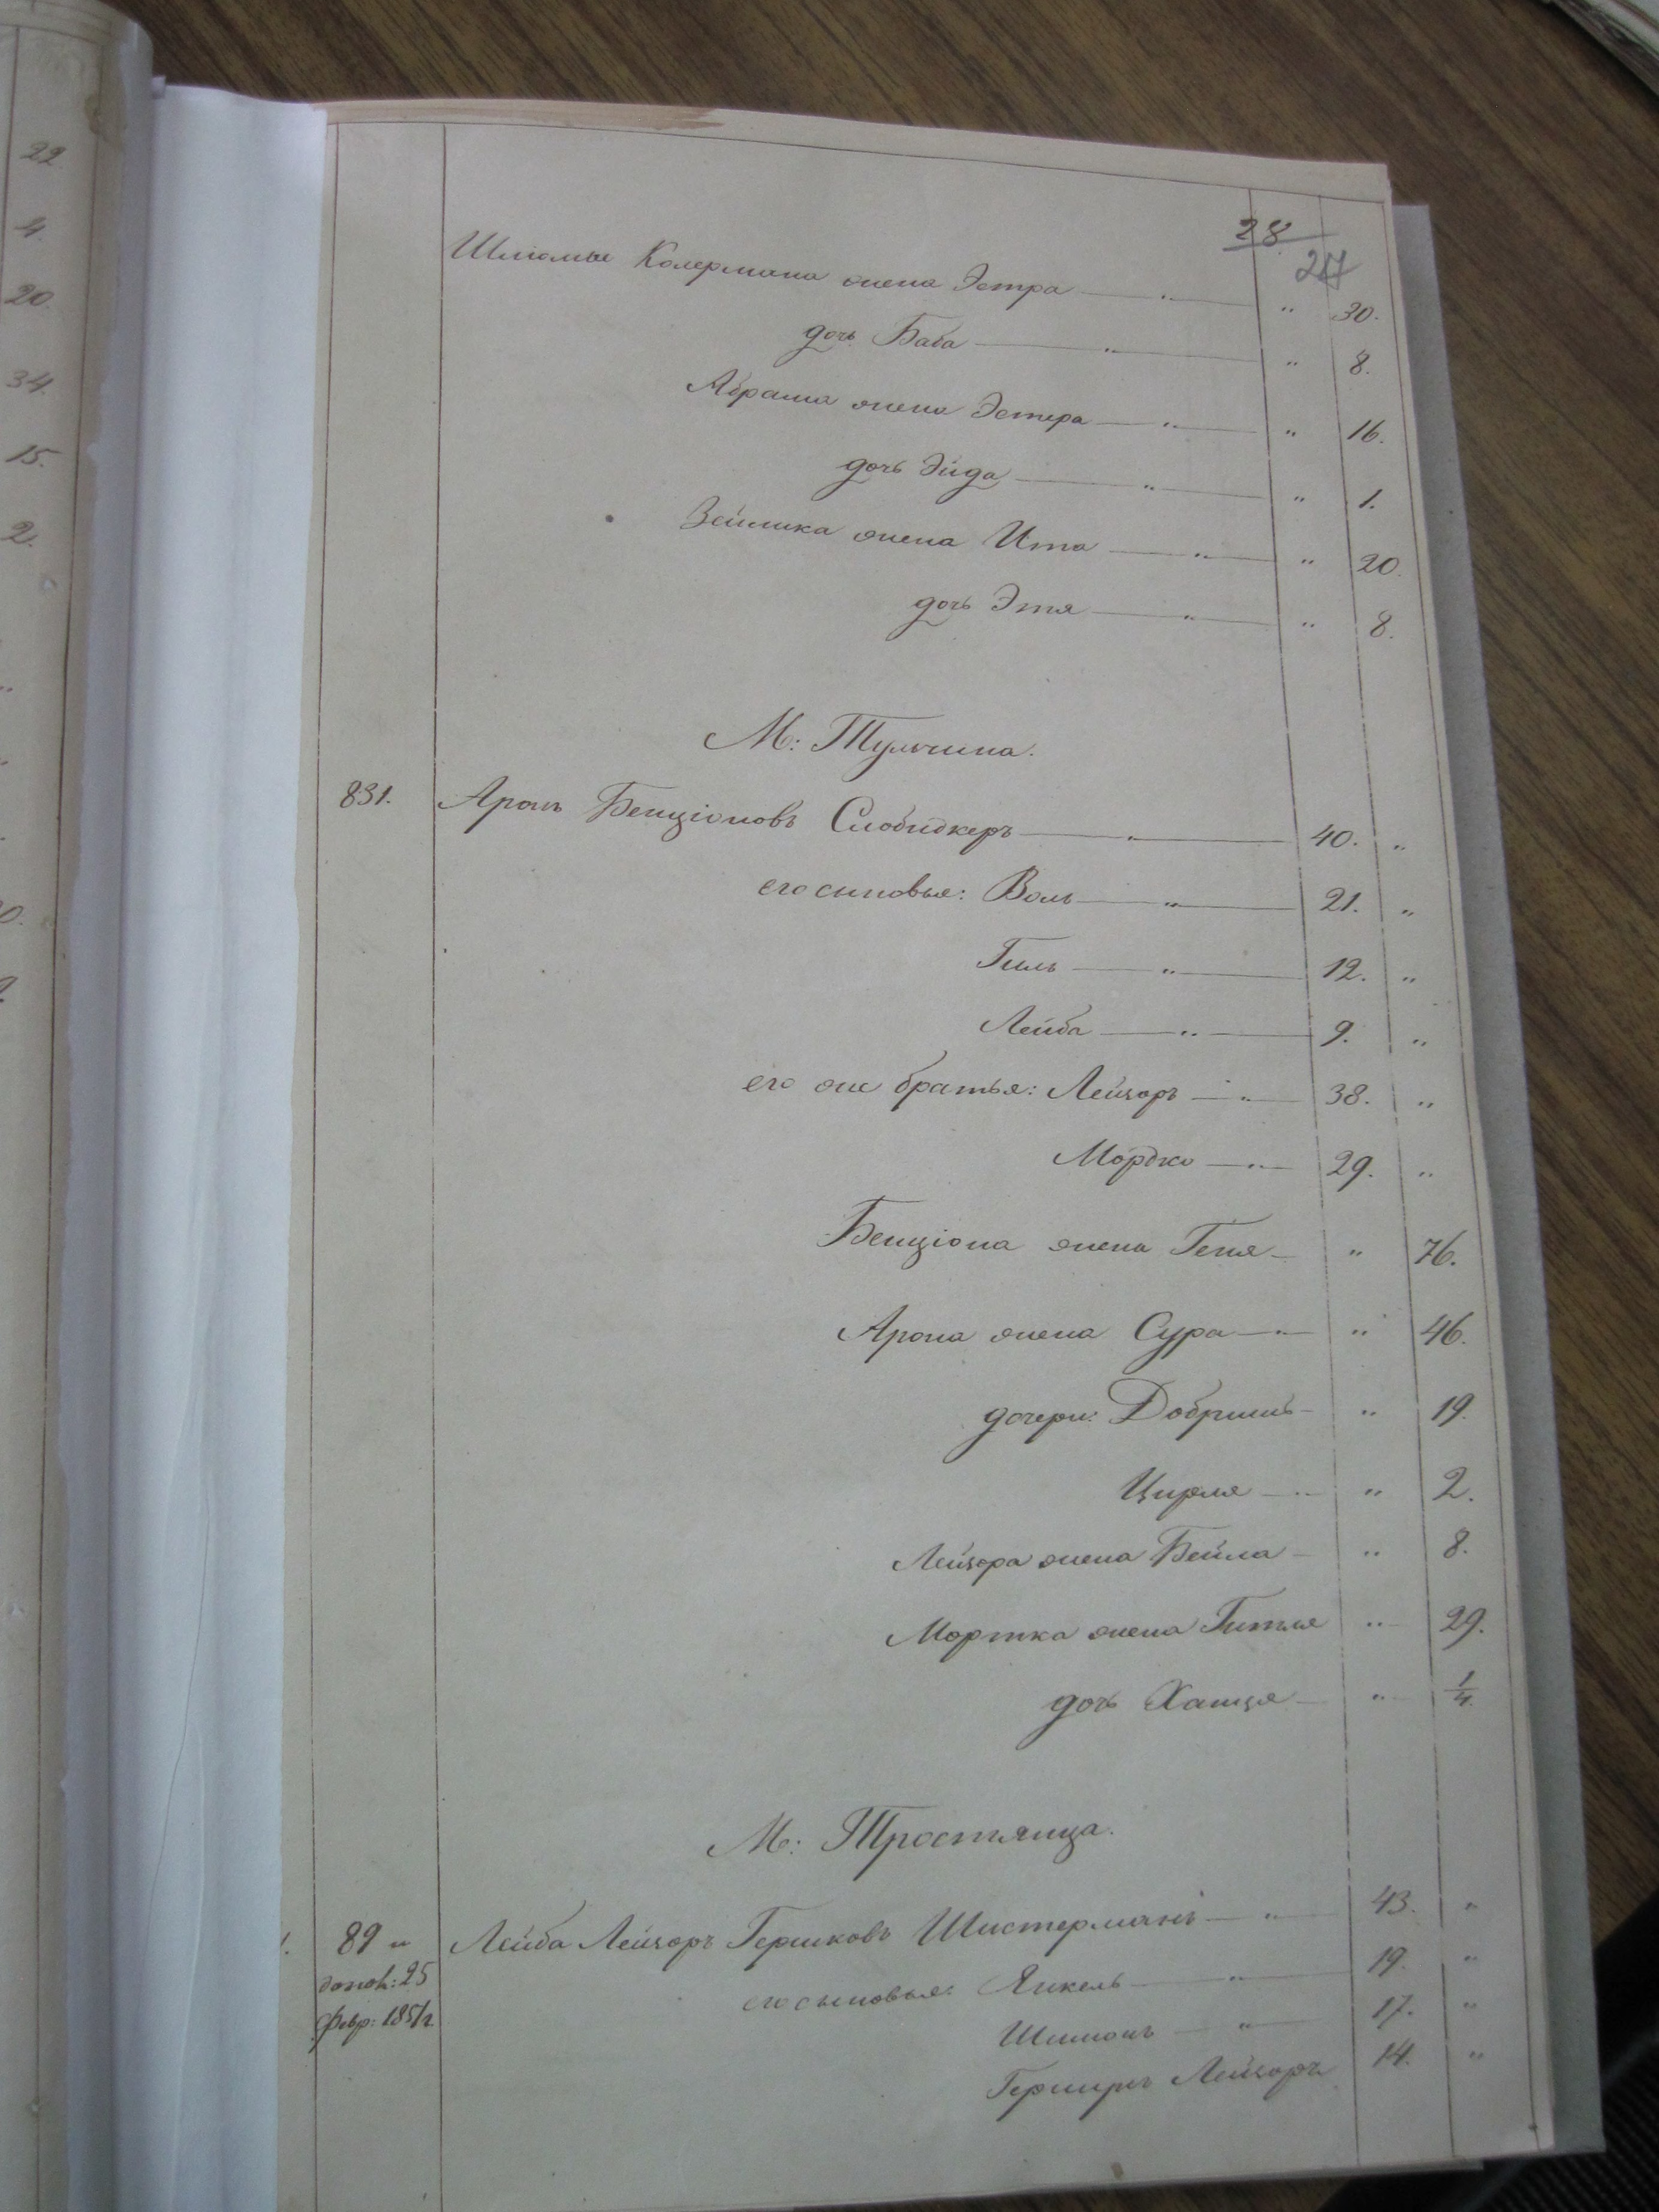 22
4.
20.
34.
15.
2.
28
27
Шлiомы Колермана жена Эстра — " — " 30.
дочь Баба — " — " 8.
Абрама жена Эстера — " — " 16.
дочь Эйда — " — " 1.
Зейлика жена Ита — " — " 20.
дочь Этя — " — " 8.
М: Тульчина.
831. Аронъ Бенціоновъ Слободкеръ — " — 40. "
его сыновья: Воль — " — 21. "
Гиль — " — 12. "
Лейба — " — 9. "
его же братья: Лейзоръ — " — 38. "
Мордко — " — 29. "
Бенціона жена Геня — " 76.
Арона жена Сура — " — " 46.
дочери: Добришь — " 19.
Цирля — " — " 2.
Лейзора жена Бейла — " 8.
Мортка жена Гитля " 29.
дочь Ханця — " 1/4.
М: Тростянца.
89 " Лейба Лейзоръ Гершковъ Шистерманъ — " — 43. "
допол: 25
февр: 1851г.
его сыновья: Янкель — " — 19. "
Шимонъ — " — 17. "
Лейзоръ 14. "